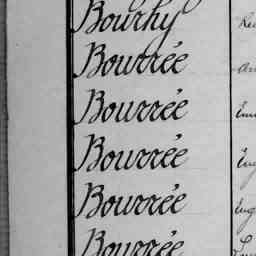 Bourhy
Bourrée
Bourrée
Bourrée
Bourrée
Bourrée